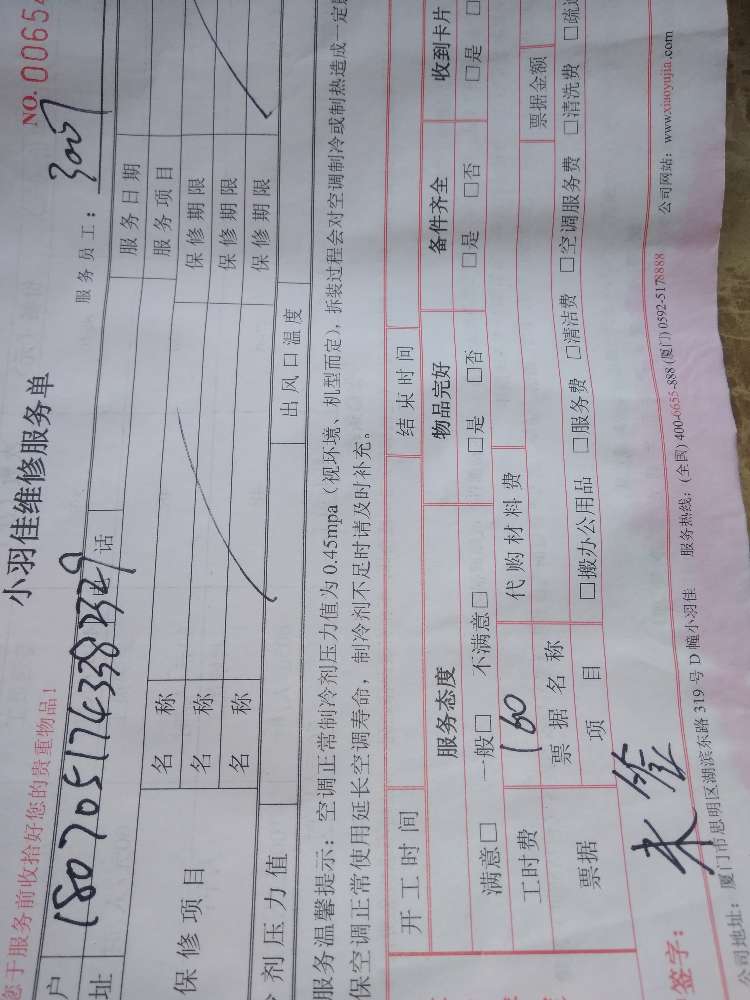 小羽佳维修服务单
NO. 0065
您于服务前收拾好您的贵重物品！
服务员工：
户 18070517433382329
址 电话 服务日期
服务项目
保修项目 名称 保修期限
名称 保修期限
名称 保修期限
剂压力值 出风口温度
服务温馨提示：空调正常制冷剂压力值为0.45mpa（视环境、机型而定），拆装过程会对空调制冷或制热造成一定
保空调正常使用延长空调寿命，制冷剂不足时请及时补充。
开工时间 结束时间
服务态度 物品完好 备件齐全 收到卡片
满意□ 一般□ 不满意□ □是 □否 □是 □否 □是
工时费 160 代购材料费
票据 票据名称 票据金额
项目 □搬办公用品 □服务费 □清洁费 □空调服务费 □清洗费 □疏
签字：
公司地址：厦门市思明区湖滨东路319号D幢小羽佳 服务热线：(全国) 400-6655-888 (厦门) 0592-5178888 公司网站：www.xiaoyujia.com